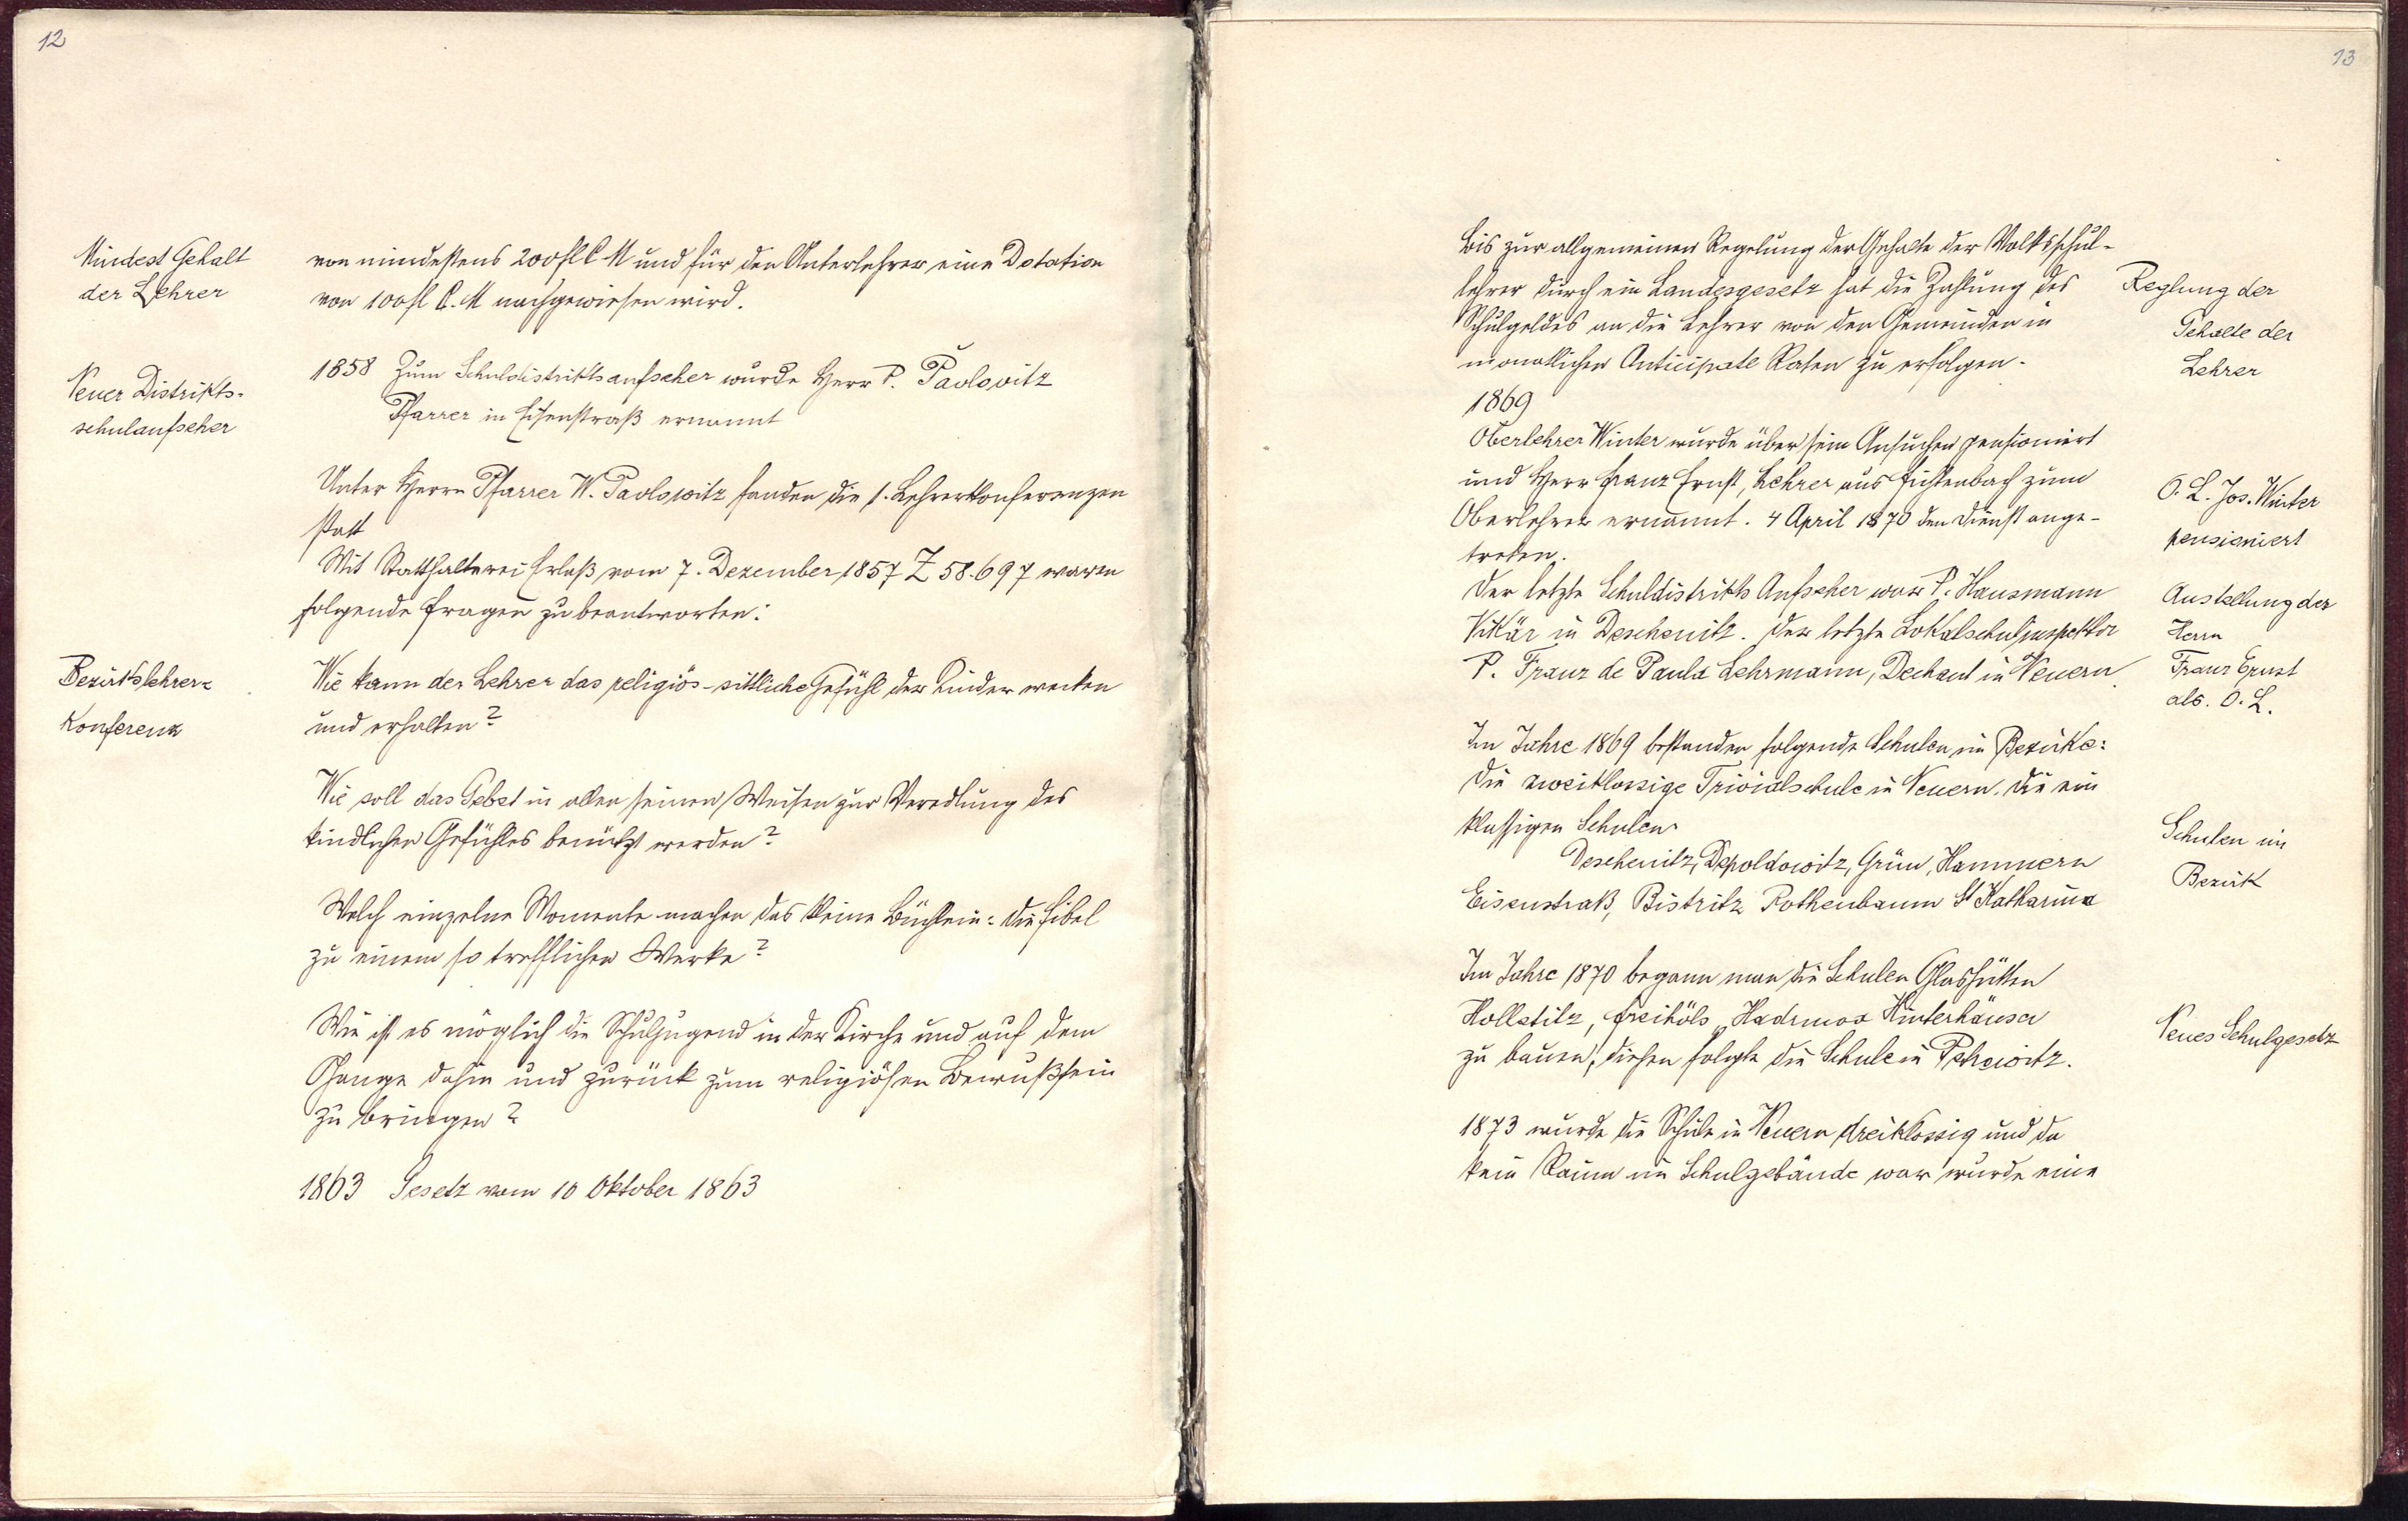 12
Mindest Gehalt
der Lehrer
von mindestens 200 fl C M und für den Unterlehrer eine Dotation
von 100 fl C. M nachgewiesen wird.
Neuer Distrikts-
schulaufseher
1858 Zum Schuldistriktsaufseher wurde Herr P. Pavlovitz
Pfarrer in Eisenstraß ernannt
Unter Herrn Pfarrer W. Pavlowitz fanden die 1. Lehrerkonferenzen
statt
Mit Statthalterei Erlaß vom 7. Dezember 1857 Z 58.697 waren
folgende Fragen zu beantworten:
Bezirkslehrer-
Konferenz
Wie kann der Lehrer das religiös-sittliche Gefühl der Kinder wecken
und erhalten?
Wie soll das Gebet in allen seinen Weisen zur Veredlung des
kindlichen Gefühles benützt werden?
Welch einzelne Momente machen das kleine Büchlein: die Fibel
zu einem so trefflichen Werke?
Wie ist es möglich die Schuljugend in der Kirche und auf dem
Gange dahin und zurück zum religiösen Bewußtsein
zu bringen?
1863 Gesetz vom 10 Oktober 1863
13
bis zur allgemeinen Regelung der Gehalte der Volksschul-
lehrer durch ein Landesgesetz hat die Zahlung des
Schulgeldes an die Lehrer von den Gemeinden in
monatlichen Anticipate Raten zu erfolgen.
Reglung der
Gehalte der
Lehrer
1869
Oberlehrer Winter wurde über sein Ansuchen pensioniert
und Herr Franz Ernst, Lehrer aus Fichtenbach zum
Oberlehrer ernannt. 4 April 1870 den Dienst ange-
treten.
O. L. Jos. Winter
pensioniert
Der letzte Schuldistrikts Aufseher war P. Hausmann
Vikär in Deschenitz. Der letzte Lokalschulinspektor
P. Franz de Paula Lehrmann, Dechant in Neuern
Anstellung der
Herrn
Franz Ernst
als. O. L.
Im Jahre 1869 bestanden folgende Schulen im Bezirke:
Die zweiklassige Trivialschule in Neuern. Die ein
klassigen Schulen
Deschenitz, Depoldowitz, Grün, Hammern
Eisenstraß, Bistritz Rothenbaum St Katharina
Schulen im
Bezirk
Im Jahre 1870 begann man die Schulen Glashütten
Hollstitz, Freihöls Hadruwa Hinterhäuser
zu bauen, diesen folgte die Schule in Petrowitz.
Neues Schulgesetz
1873 wurde die Schule in Neuern dreiklassig und da
kein Raum im Schulgebäude war wurde eine